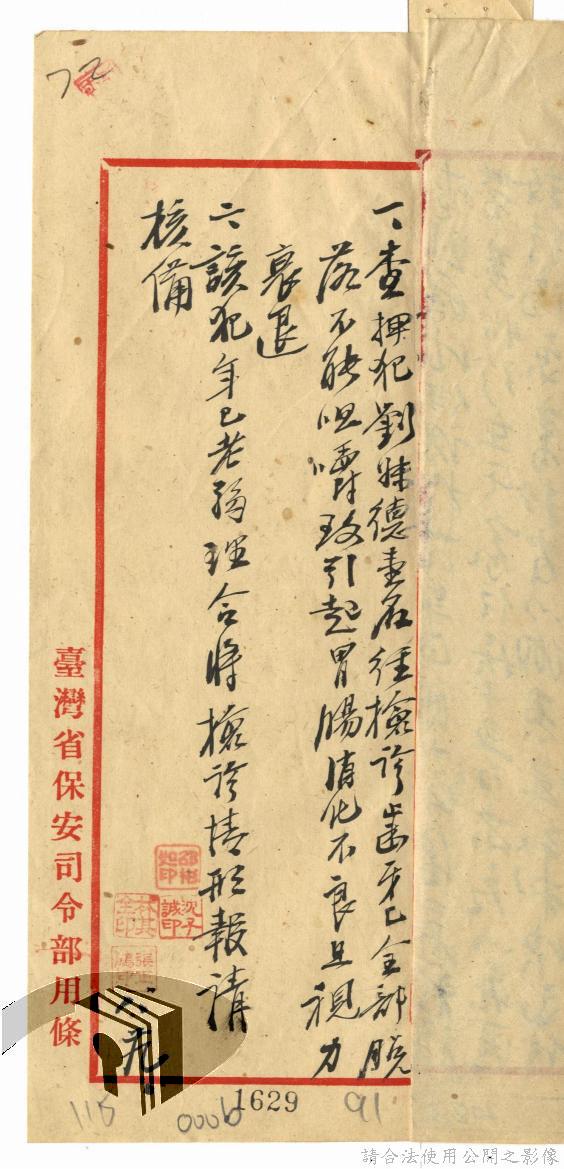 72
一、查押犯劉妹德壹名徑檢診齒牙已全部脫
落不能咀嚼致引起胃腸消化不良且視力
衰退
二、該犯年已老弱理合將檢診情形報請
核備
沈子誠印
六九
臺灣省保安司令部用條
1629
115
0006
91
請合法使用公開之影像